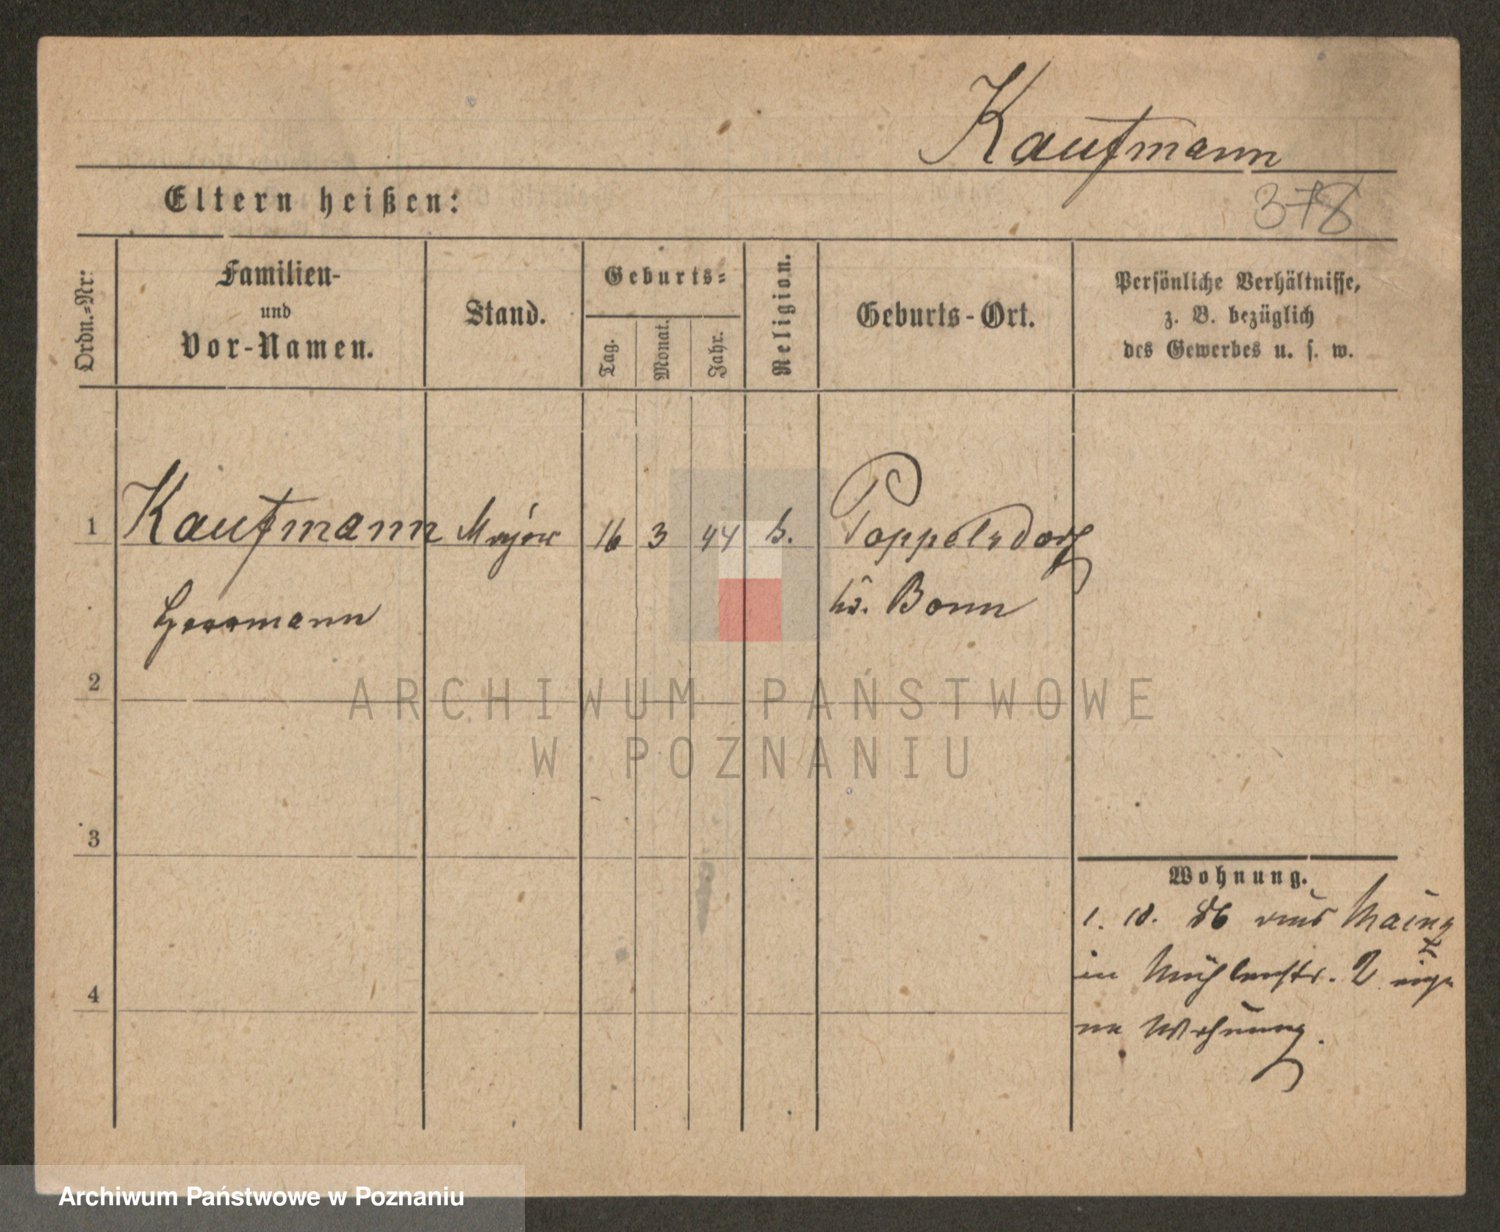 Kaufmann
Eltern heißen:
378
Ordn.-Nr:
Familien-
und
Vor-Namen.
Stand.
Geburts-
Tag.
Monat.
Jahr.
Religion.
Geburts-Ort.
Persönliche Verhältnisse,
z. B. bezüglich
des Gewerbes u. s. w.
1 Kaufmann Major 16 3 44 Poppelsdorf
Herrmann Bonn
2
3
4
Wohnung.
1. 10. 86 aus Mainz
in Mühlenstr. 2 eige
ne Wohnung.
ARCHIWUM PAŃSTWOWE
W POZNANIU
Archiwum Państwowe w Poznaniu